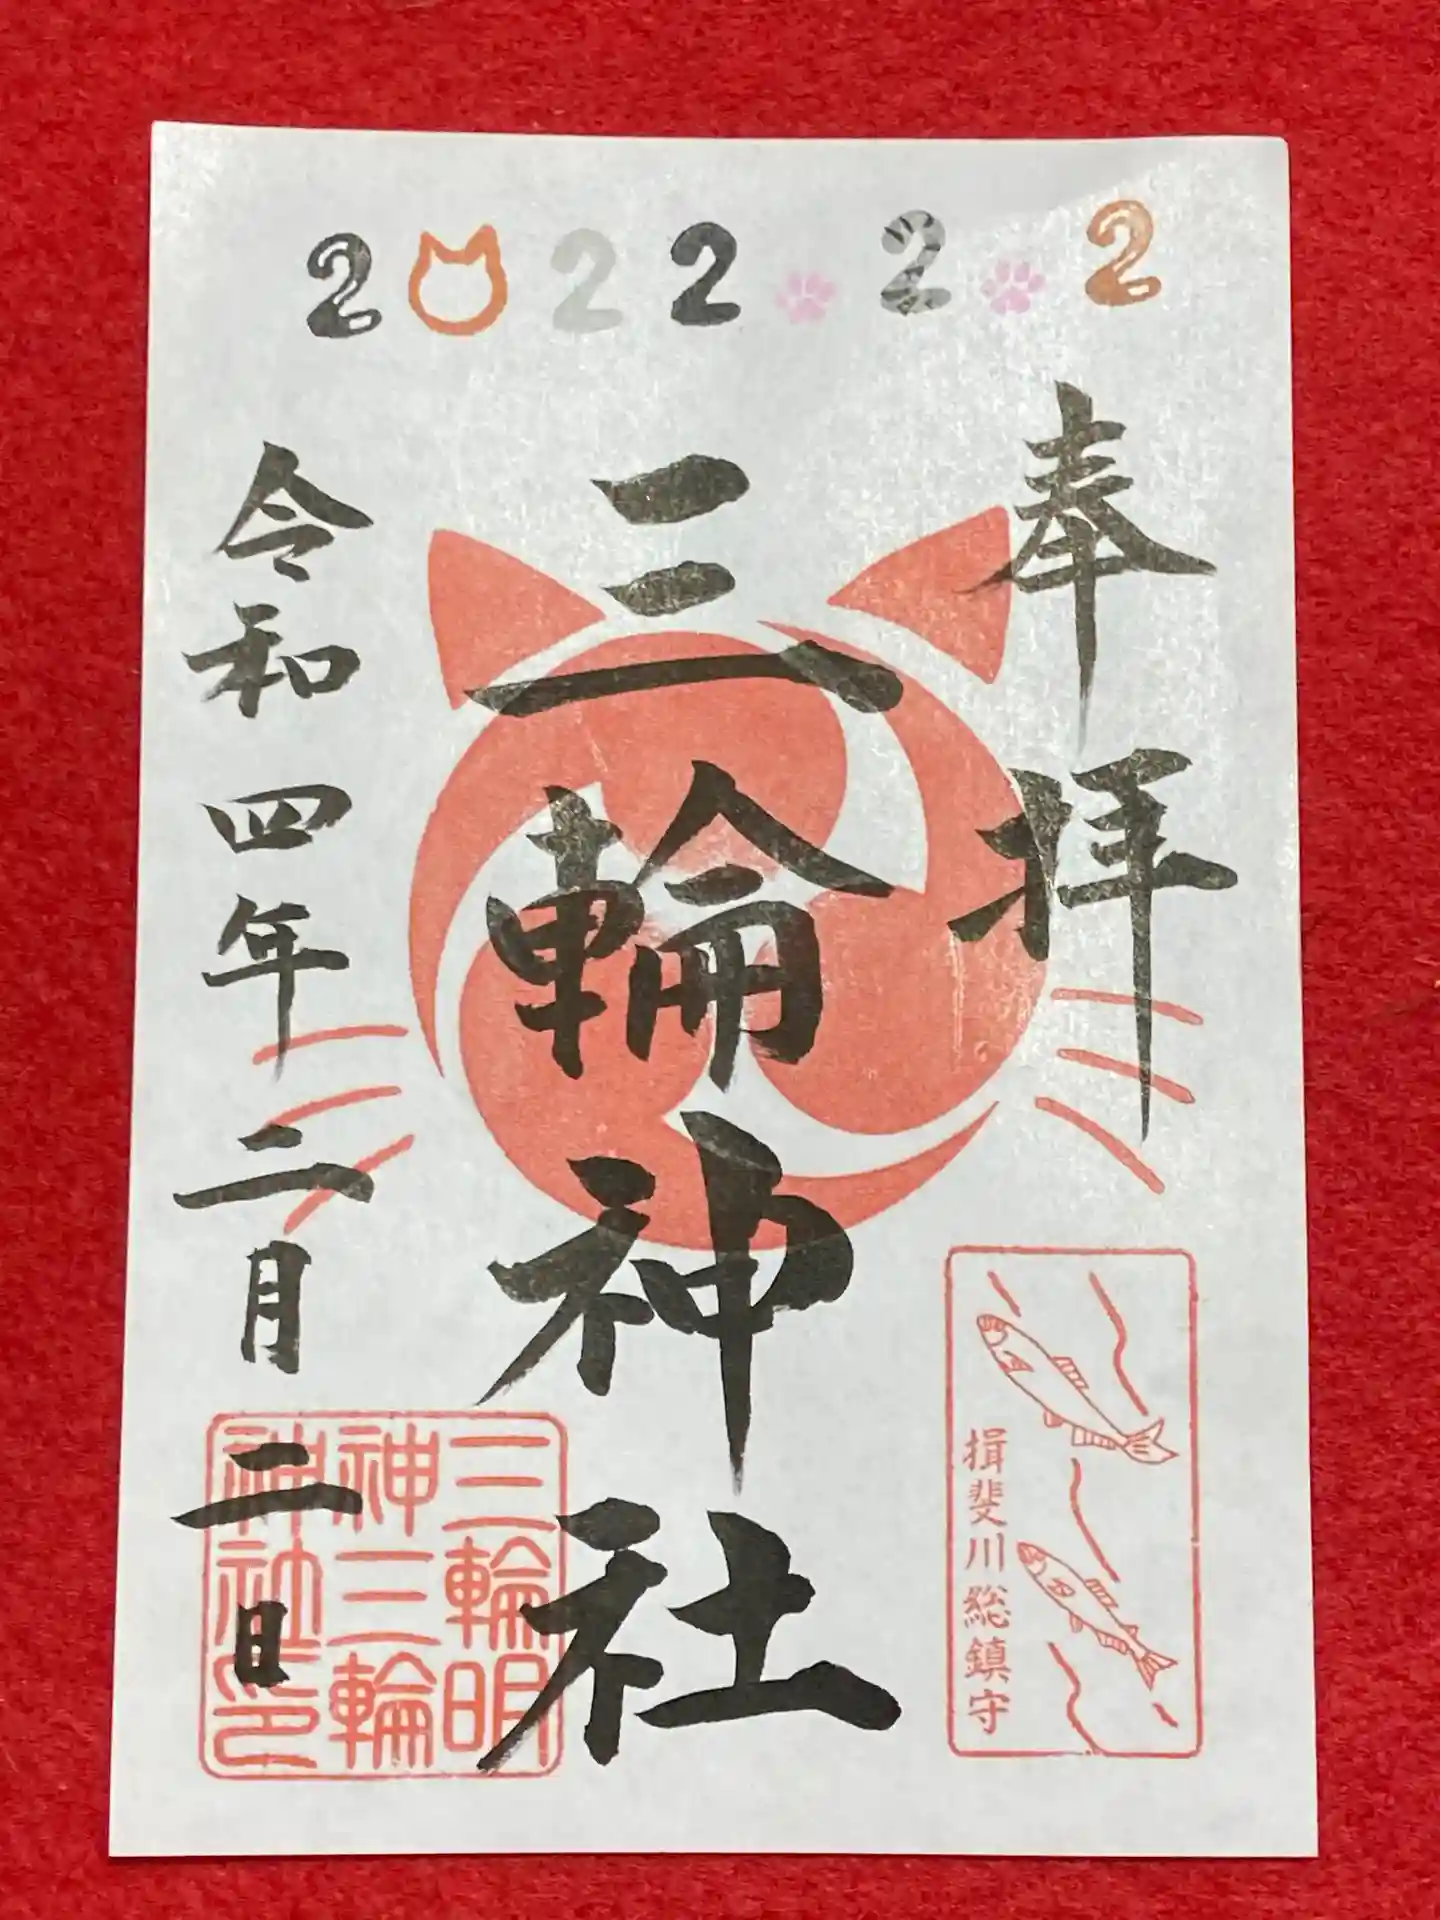 2022.2.2
奉拝
三輪神社
令和四年二月二日
揖斐川総鎮守
三輪明
神三輪
神社印